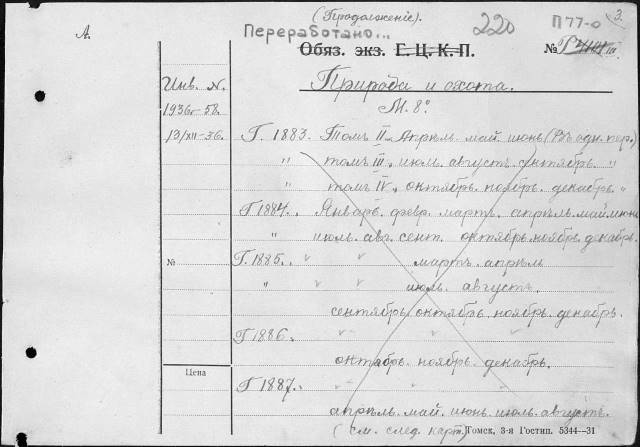 (Продолженіе).
3.
А.
Переработано...
220
П77-0
Обяз. экз. Г. Ц. К. П.
№
Природа и охота.
Инв. N.
М. 8°.
1936г-58.
13/XII-36.
Г. 1883. Томъ II. Апрѣль. май. іюнь (Въ одн. пер.)
" томъ III. іюль. августъ. сентябрь. "
" томъ IV. октябрь. ноябрь. декабрь. "
Г 1884. Январь. февр. мартъ. апрѣль. май. іюнь
" іюль. авг. сент. октябрь. ноябрь. декабрь.
№
Г. 1885. " " мартъ. апрѣль
" " іюль. августъ.
сентябрь. октябрь. ноябрь. декабрь.
Г 1886 " " "
октябрь. ноябрь. декабрь.
Цена
Г 1887. " " "
апрѣль. май. іюнь. іюль. августъ.
(см. след. карт.)
Томск, 3-я Гостип. 5344—31